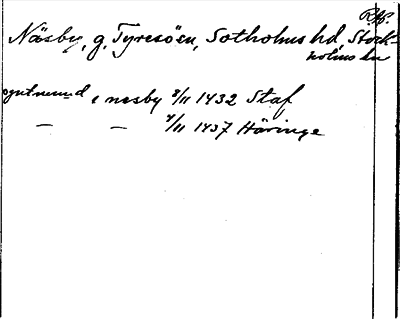 R.A.
Näsby, g, Tyresö sn, Sotholms hd, Stock-
holms län
i nesby 8/11 1432 Staf
— — 4/11 1437 Häringe